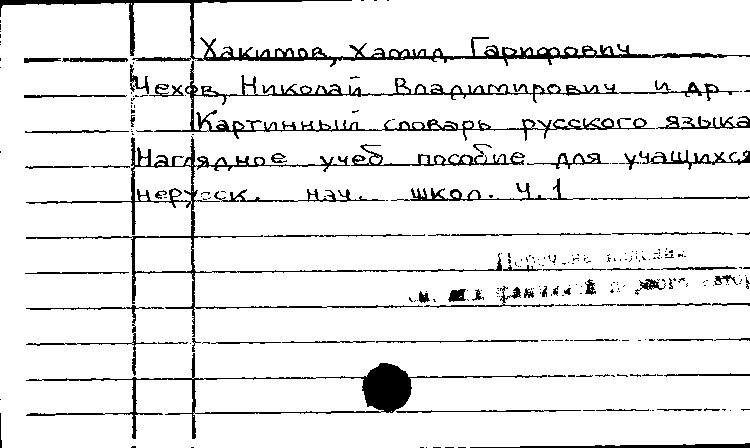 Хакимов, Хамид Гарифович
Чехов, Николай Владимирович и др.
Картинный словарь русского языка
Наглядное учеб пособие для учащихся
нерусск. нач. школ. Ч.1
Перечень изданий
см. под фамилией первого автор